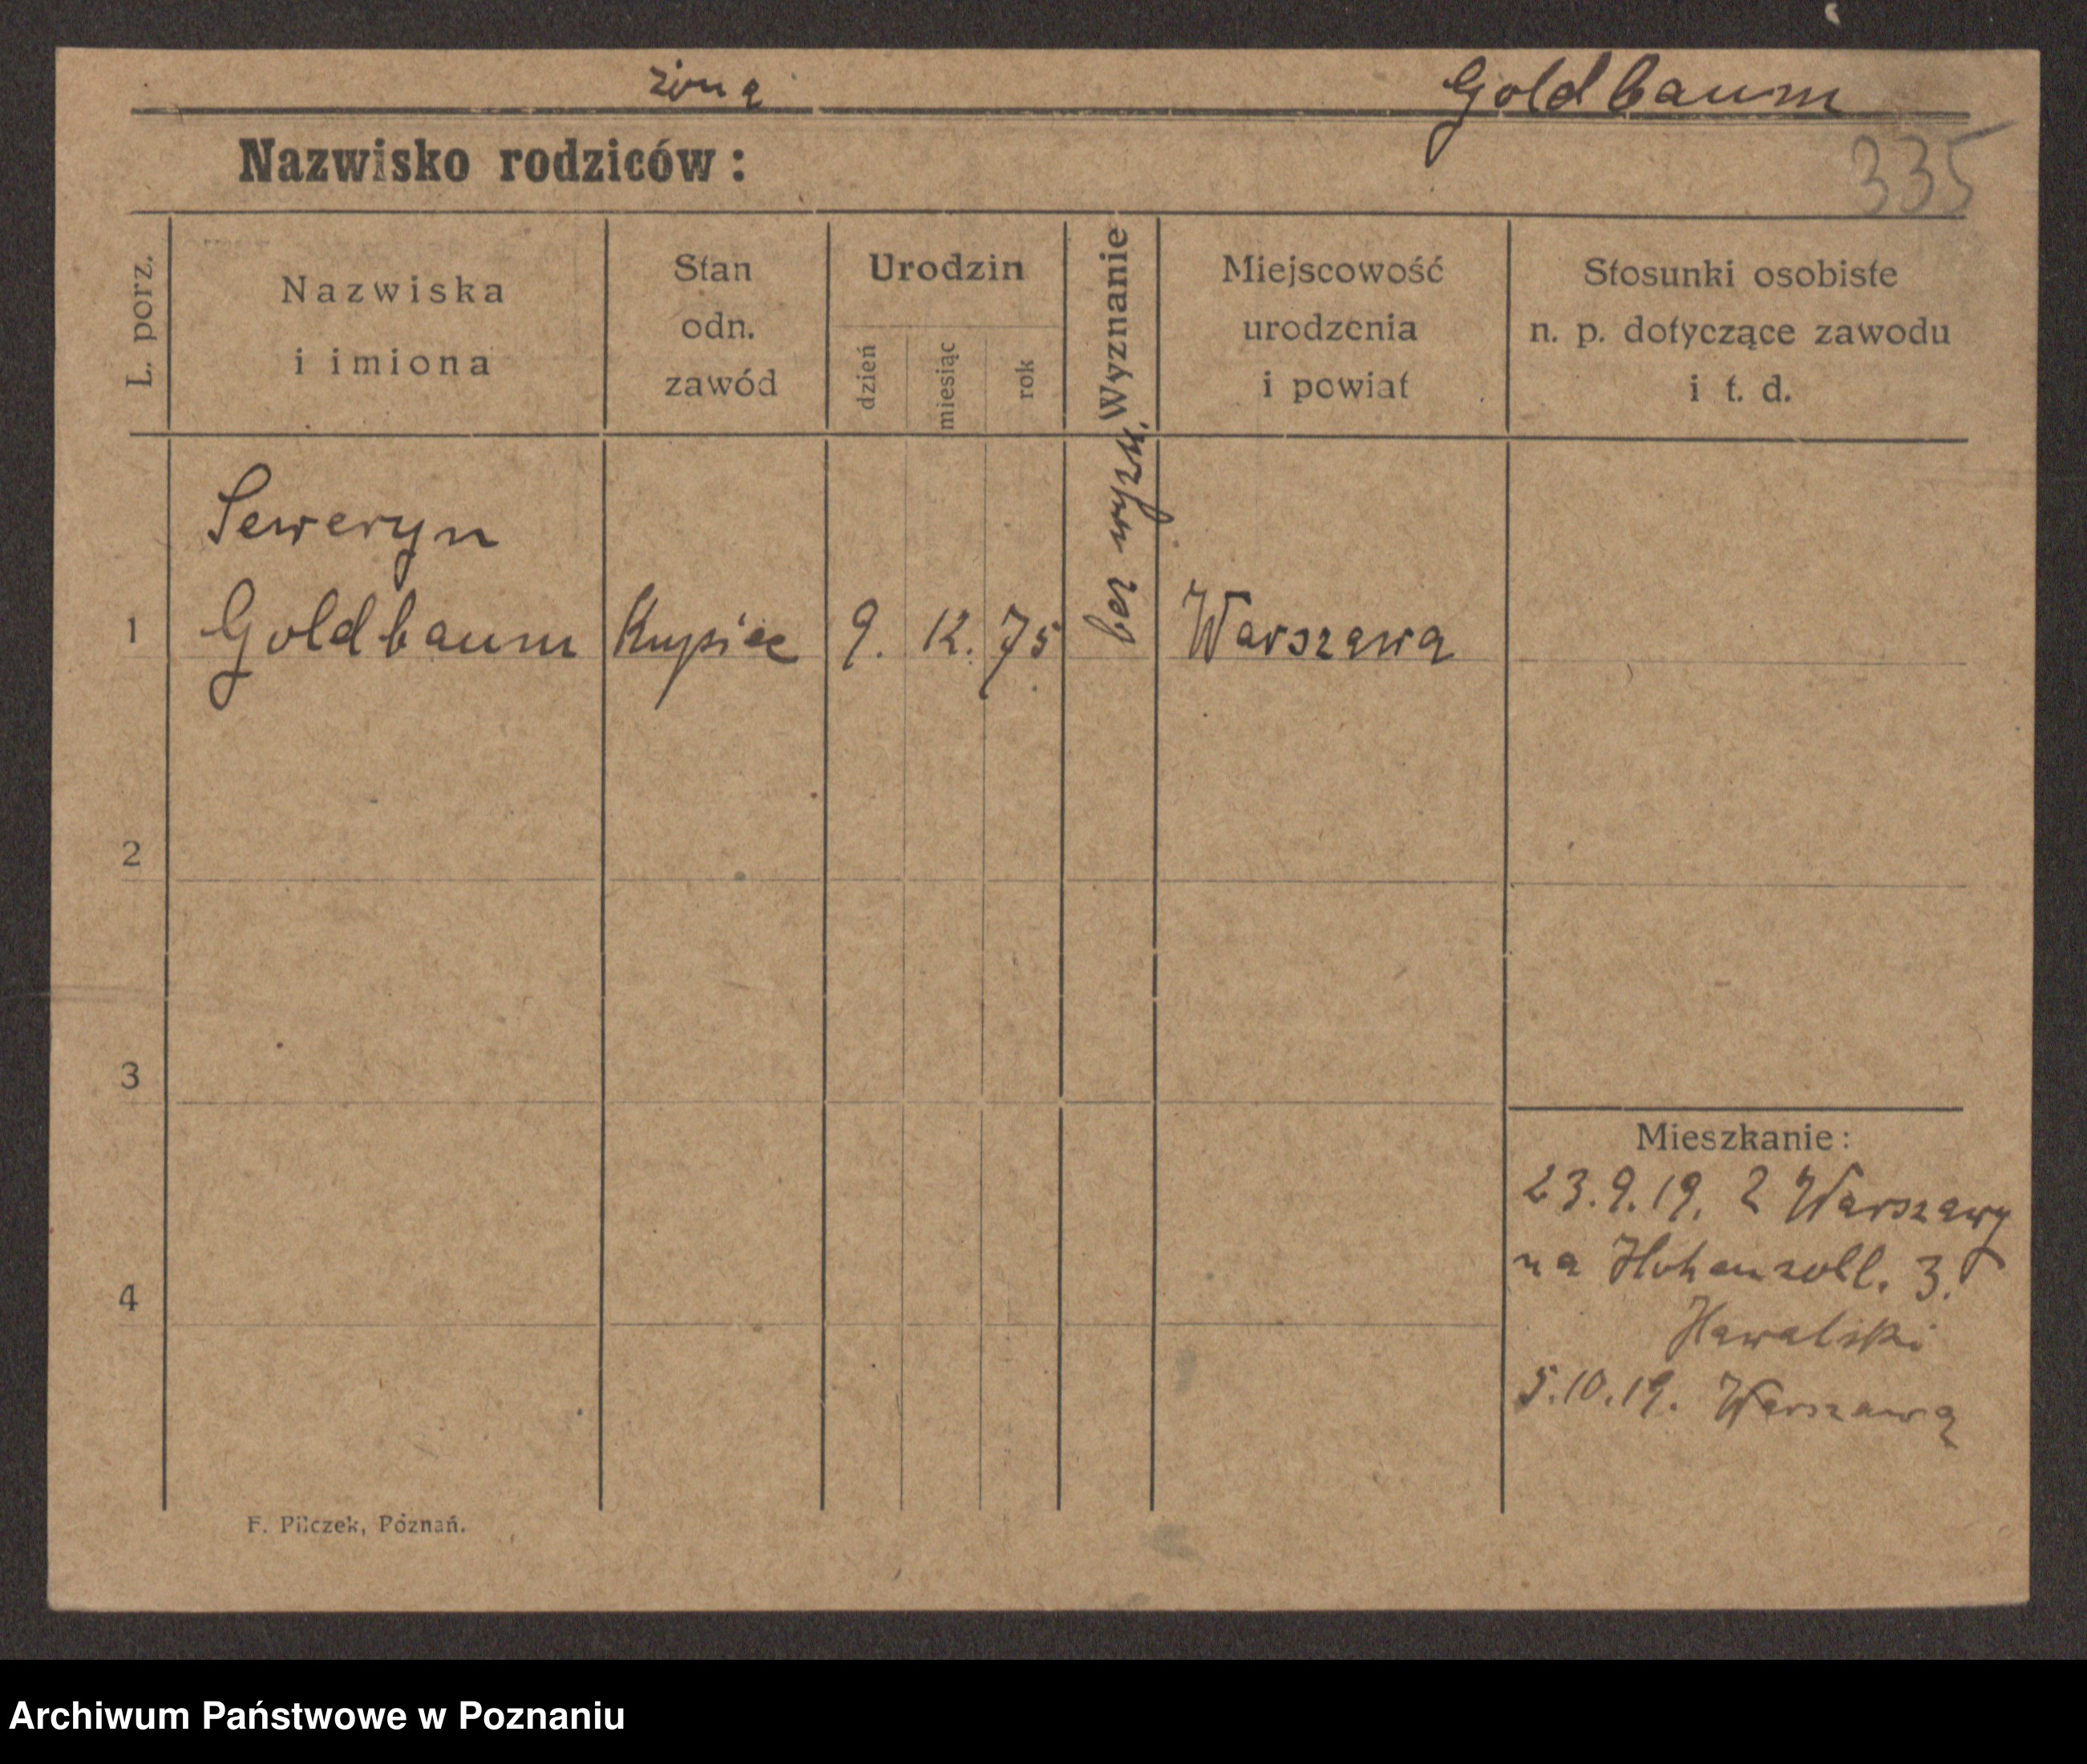 żoną Goldbaum
Nazwisko rodziców:
335
L. porz.
Nazwiska
i imiona
Stan
odn.
zawód
Urodzin
dzień
miesiąc
rok
Wyznanie
Miejscowość
urodzenia
i powiat
Stosunki osobiste
n. p. dotyczące zawodu
i t. d.
Seweryn
1 Goldbaum Kupiec 9. 12. 75 bez wyzn. Warszawa
2
3
4
Mieszkanie:
23.9.19. z Warszawy
na Hohenzoll. 3.
5.10.19. Warszawa
F. Pilczek, Poznań.
Archiwum Państwowe w Poznaniu